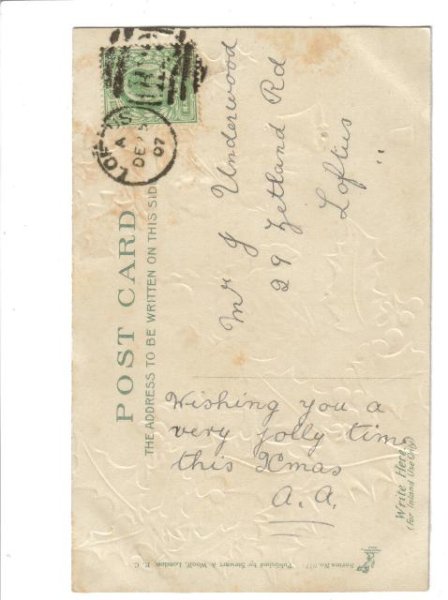 POST CARD
THE ADDRESS TO BE WRITTEN ON THIS SIDE
LOFTUS
A
DE 25
07
Mr J Underwood
29 Zetland Rd
Loftus
Wishing you a
very jolly time
this Xmas
A. A.
Write Here
(For Inland Use Only)
Series No. Published by Stewart & Woolf, London, E. C.